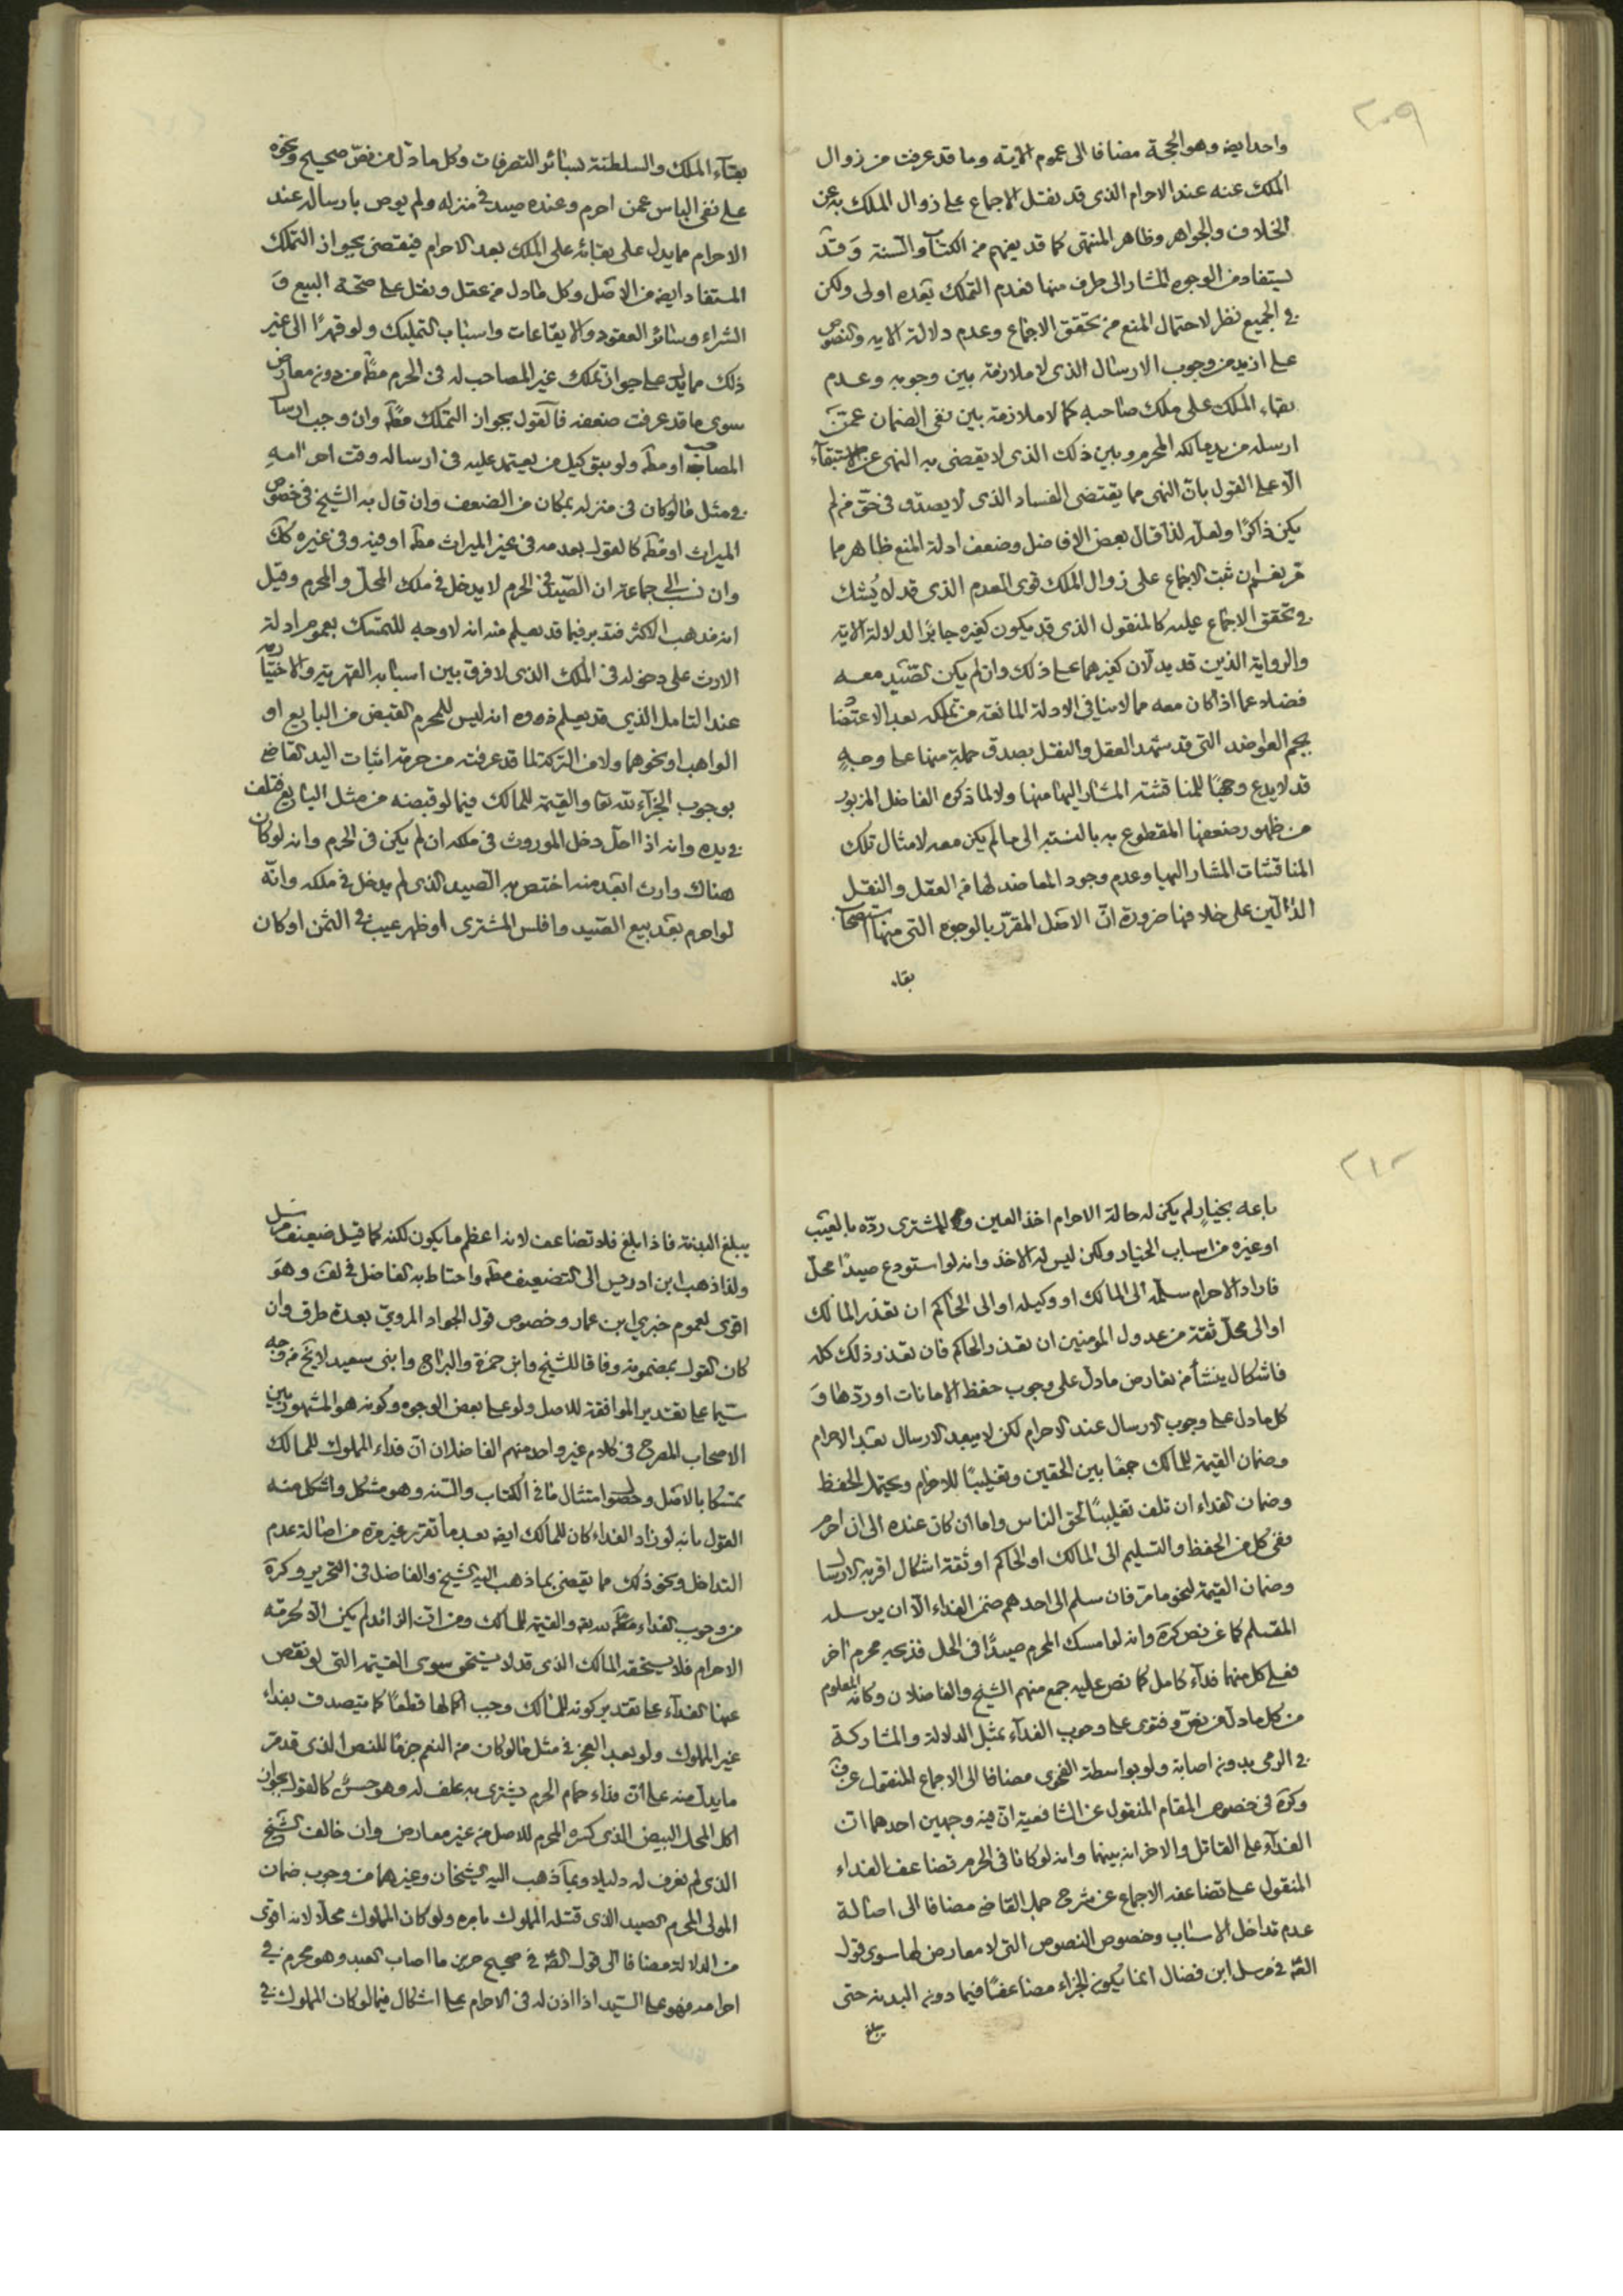 ٢٠٩
واحد ايضه وهو الحجة مضافا الى عموم الاية وما قد عرفت من زوال
الملك عنه عند الاحرام الذى قد نقل الاجماع على زوال الملك به عن
الخلاف والجواهر وظاهر المنتهى كما قد يفهم من الكتاب والسنة وقد
يستفاد من الوجوه المشار الى طرف منها فعدم التملك بعده اولى ولكن
فى الجميع نظر لاحتمال المنع من تحقق الاجماع وعدم دلالة الاية والنصوص
على ازيد من وجوب الارسال الذى لا ملازمة بين وجوبه وعدم
بقاء الملك على ملك صاحبه كما لا ملازمة بين نفى الضمان عمن
ارسله من يد مالكه المحرم وبين ذلك الذى لا يقضى به النهى عن الاستبقاء
الا على القول بان النهى مما يقتضى الفساد الذى لا يصدق فى حق من لم
يكن ذاكرا ولعله لذا قال بعض الافاضل وضعف ادلة المنع ظاهر مما
مر نعم ان ثبت الاجماع على زوال الملك قوى العدم الذى قد لا يشك
فى تحقق الاجماع عليه كالمنقول الذى قد يكون كغيره جابرا لدلالة الاية
والرواية الذين قد يدلان كغيرهما على ذلك وان لم يكن الصيد معه
فضلا عما اذا كان معه مما لا ينافى الادلة المانعة من تملكه بعد الاعتضا
بجم العواضد التى قد شهد العقل والنقل بصدق جملة منها على وجه
قد لا يدع وجها للمناقشة المشار اليها منها ولا لما ذكره الفاضل المزبور
من ظهور ضعفها المقطوع به بالنسبة الى ما لم يكن معه لامثال تلك
المناقشات المشار اليها وعدم وجود المعاضد لها من العقل والنقل
الدالين على خلافها ضرورة ان الاصل المقرر بالوجوه التى منها استصحاب
بقاء
بقاء الملك والسلطنة لسائر التصرفات وكل ما دل من نص صحيح ونحوه
على نفى الباس عمن احرم وعنده صيد فى منزله ولم يوص بارساله عند
الاحرام مما يدل على بقائه على الملك بعد الاحرام فيقضى بجواز التملك
المستفاد ايضه من الاصل وكل ما دل من عقل ونقل على صحة البيع و
الشراء وسائر العقود والايقاعات واسباب التمليك ولو قهرا الى غير
ذلك مما يدل على جواز تملك غير المصاحب له فى الحرم مطه من دون معارض
سوى ما قد عرفت ضعفه فالقول بجواز التملك مطه وان وجب ارسال
المصاحب او مطه ولو بتوكيل من يعتمد عليه فى ارساله وقت احرامه
فى مثل ما لو كان فى منزله بمكان من الضعف وان قال به الشيخ فى خصوص
الميراث او مطه كالقول بعدمه فى غير الميراث مطه او فيه وفى غيره كك
وان نسب الى جماعة ان الصيد فى الحرم لا يدخل فى ملك المحل والمحرم وقيل
انه مذهب الاكثر فتدبر فيما قد يعلم منه انه لا وجه للتمسك بعموم ادلة
الارث على دخوله فى الملك الذى لا فرق بين اسبابه القهرية والاختيارية
عند التامل الذي قد يعلم منه انه ليس للمحرم القبض من البايع او
الواهب او نحوهما ولا من التركة لما قد عرفته من حرمة اثبات اليد القاضى
بوجوب الجزاء لله تعا والقيمة للمالك فيما لو قبضه من مثل البايع فتلف
فى يده وانه اذا احل دخل الموروث فى ملكه ان لم يكن فى الحرم وانه لو كان
هناك وارث ابعد منه اختص به الصيد الذى لم يدخل فى ملكه وانه
لو احرم بعد بيع الصيد وافلس المشترى او ظهر عيب فى الثمن او كان
٢١٠
باعه بخيار لم يكن له حالة الاحرام اخذ العين و للمشترى رده بالعيب
او غيره من اسباب الخيار ولكن ليس له الاخذ وانه لو استودع صيدا محل
فاراد الاحرام سلمه الى المالك او وكيله او الى الحاكم ان تعذر المالك
او الى محل ثقة من عدول المومنين ان تعذر الحاكم فان تعذر ذلك كله
فاشكال ينشأ من تعارض ما دل على وجوب حفظ الامانات او ردها و
كل ما دل على وجوب الارسال عند الاحرام لكن لا يبعد الارسال بعد الاحرام
وضمان القيمة للمالك جمعا بين الحقين وتغليبا للاحرام ويحتمل الحفظ
وضمان الفداء ان تلف تغليبا لحق الناس واما ان كان عنده الى ان احرم
ففى كل من الحفظ والتسليم الى المالك او الحاكم او ثقة اشكال اقربه الارسال
وضمان القيمة لنحو ما مر فان سلم الى احدهم ضمن الفداء الا ان يرسله
المتسلم كما عن نص كره وانه لو امسك المحرم صيدا فى الحل فذبحه محرم اخر
فعلى كل منهما فداء كامل كما نص عليه جمع منهم الشيخ والفاضلان وكانه المعلوم
من كل ما دل من نص وفتوى على وجوب الفداء بمثل الدلالة والمشاركة
فى الرمى بدون اصابة ولو بواسطة الفحوى مضافا الى الاجماع المنقول عن ف
وكره فى خصوص المقام المنقول عن الشافعية ان فيه وجهين احدهما ان
الفداء على القاتل والاخر انه بينهما وانه لو كانا فى الحرم تضاعف الفداء
المنقول على تضاعفه الاجماع عن شرح جمل القاضى مضافا الى اصالة
عدم تداخل الاسباب وخصوص النصوص التى لا معارض لها سوى قول
الصه فى مرسل ابن فضال انما يكون الجزاء مضاعفا فيما دون البدنة حتى
يبلغ
يبلغ البدنة فاذا بلغ فلا تضاعف لانه اعظم ما يكون لكنه كما قيل ضعيف مرسل
ولذا ذهب ابن ادريس الى التضعيف مطه واحتاط به الفاضل فى لف وهو
اقوى لعموم خبري ابن عمار وخصوص قول الجواد المروي بعدة طرق وان
كان القول بمضمونه وفاقا للشيخ وابن حمزة والبراج وابنى سعيد لا يخ من وجه
سيما على تقدير الموافقة للاصل ولو على بعض الوجوه وكونه هو المشهور بين
الاصحاب المصرح فى كلام غير واحد منهم الفاضلان ان فداء المملوك للمالك
تمسكا بالاصل وحصول امتثال ما فى الكتاب والسنة وهو مشكل واشكل منه
القول بانه لو زاد الفداء كان للمالك ايضه بعد ما تقرر غير مرة من اصالة عدم
التداخل ونحو ذلك مما يقضى بما ذهب اليه الشيخ والفاضل فى التحرير وكره
من وجوب الفداء مطه لله تعه والقيمة للمالك ومن ان الزائد لم يكن الا لحرمة
الاحرام فلا يستحقه المالك الذى قد لا يستحق سوى القيمة التى لو نقص
عنها الفداء على تقدير كونه للمالك وجب اكمالها قطعا كما يتصدق بفداء
غير المملوك ولو بعد العجز فى مثل ما لو كان من النعم جزما للنص الذى قد مر
ما يدل منه على ان فداء حمام الحرم يشترى به علف له وهو حسن كالقول بجواز
اكل المحل البيض الذى كسره المحرم للاصل من غير معارض وان خالف الشيخ
الذى لم نعرف له دليلا وبما ذهب اليه الشيخان وغيرهما من وجوب ضمان
المولى المحرم الصيد الذى قتله المملوك بامره ولو كان المملوك محلا لانه اقوى
من الدلالة مضافا الى قول الصه فى صحيح حريز ما اصاب العبد وهو محرم فى
احرامه فهو على السيد اذا اذن له فى الاحرام على اشكال فيما لو كان المملوك فى